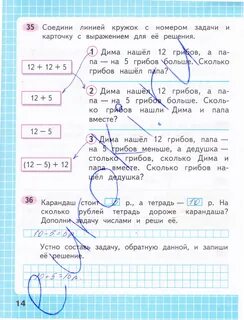 35 Соедини линией кружок с номером задачи и
карточку с выражением для её решения.
1 Дима нашёл 12 грибов, а па-
па — на 5 грибов больше. Сколько
грибов нашёл папа?
12 + 12 + 5
2 Дима нашёл 12 грибов, а па-
па — на 5 грибов больше. Сколь-
ко грибов нашли Дима и папа
вместе?
12 + 5
12 − 5
3 Дима нашёл 12 грибов, папа —
на 5 грибов меньше, а дедушка —
столько грибов, сколько Дима и
папа вместе. Сколько грибов на-
шёл дедушка?
(12 − 5) + 12
36 Карандаш стоит р., а тетрадь — 10 р. На
сколько рублей тетрадь дороже карандаша?
Дополни задачу числами и реши её.
10-5=5р.
Устно составь задачу, обратную данной, и запиши
её решение.
14